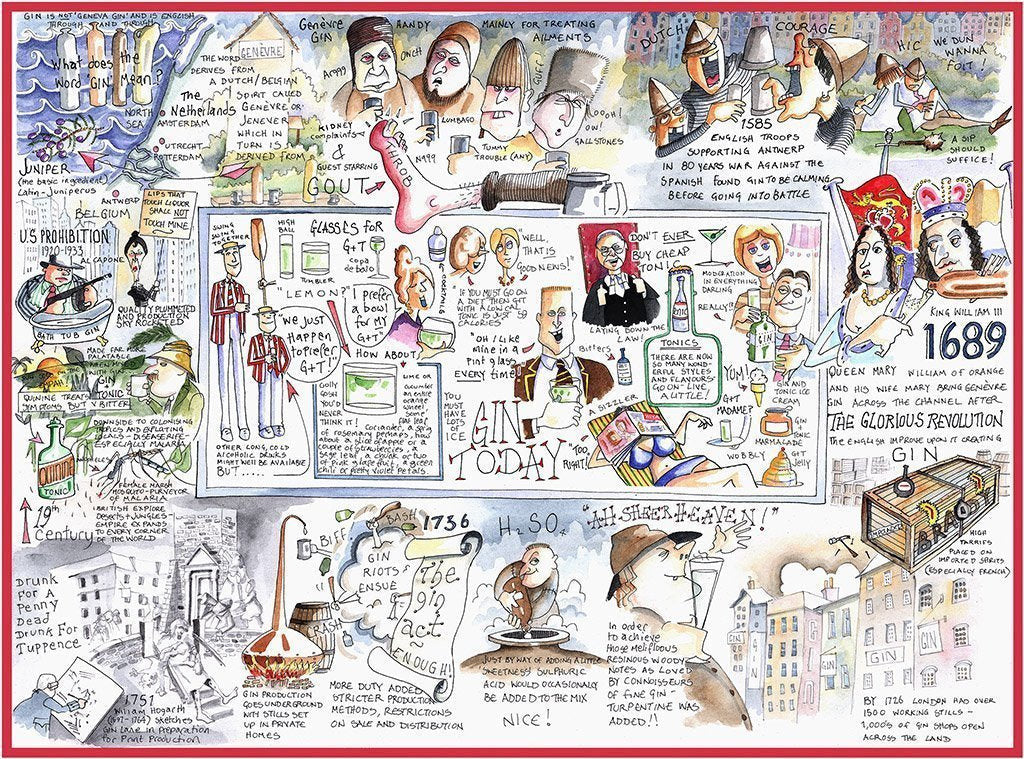 GIN IS NOT 'GENEVA GIN' AND IS ENGLISH
THROUGH AND THROUGH
What does the
Word 'GIN' Mean?
NORTH
SEA
The
Netherlands
AMSTERDAM
UTRECHT
ROTTERDAM
JUNIPER
(the basic ingredient)
Latin - Juniperus
ANTWERP
BELGIUM
GENÈVRE
THE WORD
DERIVES FROM
A DUTCH/BELGIAN
SPIRIT CALLED
GENÈVRE OR
JENEVER
WHICH IN
TURN IS
DERIVED FROM
Genèvre
Gin
HANDY
MAINLY FOR TREATING
AILMENTS
Argggh
OUCH
LUMBAGO
KIDNEY
Complaints
&
GUEST STARRING
GOUT
THROB
TUMMY
TROUBLE (ANY)
OOOH!
OW!
GALLSTONES
DUTCH
COURAGE
HIC
WE DUN
WANNA
FOIT!
1585
ENGLISH TROOPS
SUPPORTING ANTWERP
IN 80 YEARS WAR AGAINST THE
SPANISH FOUND GIN TO BE CALMING
BEFORE GOING INTO BATTLE
A SIP
SHOULD
SUFFICE!
KING WILLIAM III
1689
QUEEN MARY
WILLIAM OF ORANGE
AND HIS WIFE MARY BRING GENÈVRE
GIN ACROSS THE CHANNEL AFTER
THE GLORIOUS REVOLUTION
THE ENGLISH IMPROVE UPON IT CREATING
GIN
HIGH
TARRIFS
PLACED ON
IMPORTED SPIRITS
(ESPECIALLY FRENCH)
GIN
GIN
GIN
GIN
BY 1726 LONDON HAS OVER
1500 WORKING STILLS -
1,000'S OF GIN SHOPS OPEN
ACROSS THE LAND
"AH SHEER HEAVEN!"
In order
to achieve
those melifluous
resinous woody
notes as loved
by connoisseurs
of fine GIN -
TURPENTINE WAS
ADDED!!
H2SO4
JUST BY WAY OF ADDING A LITTLE
'SWEETNESS' SULPHURIC
ACID WOULD OCCASIONALLY
BE ADDED TO THE MIX
NICE!
1736
BASH
BIFF
CRASH
GIN
RIOTS
ENSUE
The
gin
act
ENOUGH!
MORE DUTY ADDED
STRICTER PRODUCTION
METHODS, RESTRICTIONS
ON SALE AND DISTRIBUTION
GIN PRODUCTION
GOES UNDERGROUND
WITH STILLS SET
UP IN PRIVATE
HOMES
DRUNK
FOR A
PENNY
DEAD
DRUNK FOR
TUPPENCE
1751
William Hogarth
(1697-1764) Sketches
Gin Lane in Preparation
for Print Production
19th
century
BRITISH EXPLORE
DESERTS + JUNGLES -
EMPIRE EXPANDS
TO EVERY CORNER
OF THE WORLD
MADE FAR MORE
PALATABLE
GIN
TONIC
QUININE TREATS
SYMPTOMS BUT V BITTER
DOWNSIDE TO COLONISING
TROPICS AND BEFUDDLING
LOCALS - DISEASE RIFE -
ESPECIALLY MALARIA
FEMALE MARSH
MOSQUITO - PURVEYOR
OF MALARIA
TONIC
U.S PROHIBITION
1920-1933
AL CAPONE
LIPS THAT
TOUCH LIQUOR
SHALL NOT
TOUCH MINE
BATH TUB GIN
QUALITY PLUMMETED
AND PRODUCTION
SKY ROCKETED
SWING
SWING
TOGETHER
HIGH
BALL
TUMBLER
GLASSES FOR
G+T
copa
de balo
"LEMON?"
I prefer
a bowl
for my
G+T"
"We just
happen
to prefer
G+T!"
HOW ABOUT
OTHER LONG, COLD
ALCOHOLIC DRINKS
MIGHT WELL BE AVAILABLE
BUT....
GOLLY
GOSH
YOU'D
NEVER
THINK IT!
LIME OR
cucumber
an entire
orange
wheel
Some
leaf
Coriander, a sprig
of rosemary perhaps, how
about a slice of apple, a
couple of strawberries, a
sage leaf, a chunk or two
of pink grapefruit, a green
chilli or pretty violet petals.
YOU
MUST
HAVE
LOTS
OF
ICE
"WELL,
THAT IS
GOOD NEWS!"
IF YOU MUST GO ON
A DIET THEN G+T
WITH A LOW CAL
TONIC IS JUST 59
CALORIES
"OH I LIKE
MINE IN A
PINT GLASS
EVERY time"
GIN
TODAY
DON'T EVER
BUY CHEAP
TONIC!
LAYING DOWN THE
LAW!
Bitters
TONIC
TONICS
THERE ARE NOW
SO MANY WOND-
ERFUL STYLES
AND FLAVOURS
GO ON - LIVE
A LITTLE!
MODERATION
IN EVERYTHING
DARLING
REALLY!?
GIN
A SIZZLER
"TOO
RIGHT!"
YUM!
GIN AND
TONIC ICE
CREAM
G+T
MADAME?
GIN
TONIC
MARMALADE
WOBBLY
G+T
Jelly